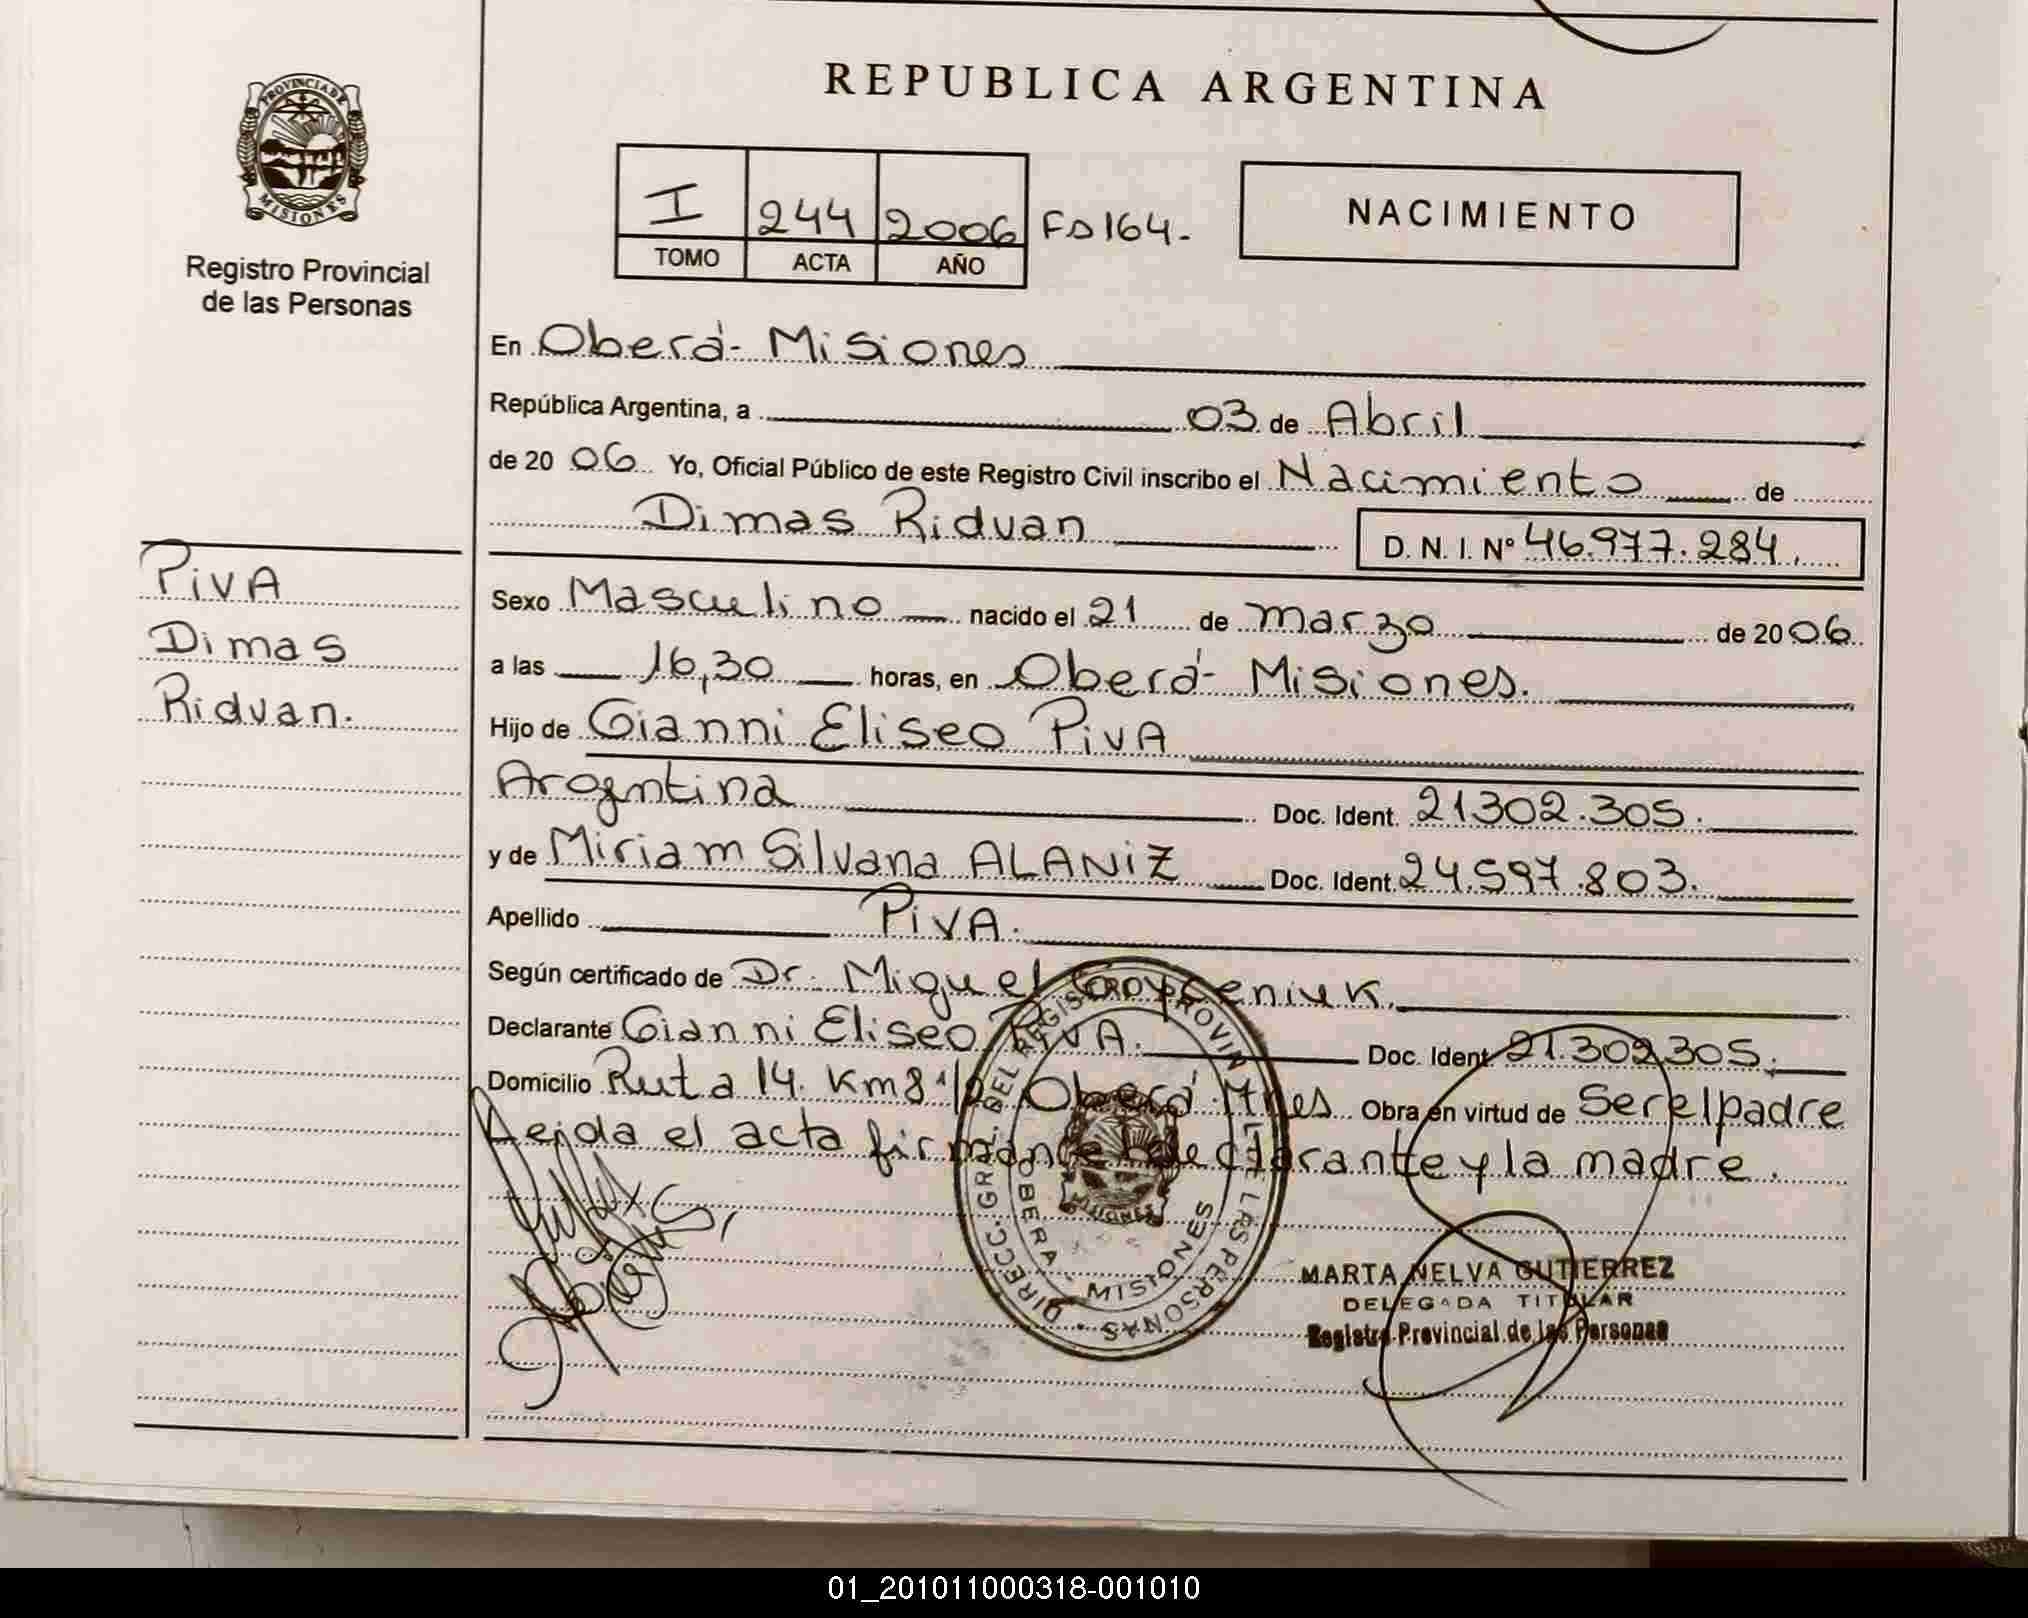 REPUBLICA ARGENTINA
PROVINCIA DE
MISIONES
Registro Provincial
de las Personas
I 244 2006 Fo 164.
TOMO ACTA AÑO
NACIMIENTO
En Oberá - Misiones
República Argentina, a 03 de Abril
de 20 06 Yo, Oficial Público de este Registro Civil inscribo el Nacimiento de
Dimas Ridvan D. N. I. Nº 46.977.284.
PIVA
Dimas
Ridvan.
Sexo Masculino nacido el 21 de marzo de 20 06
a las 16,30 horas, en Oberá - Misiones.
Hijo de Gianni Eliseo PIVA
Argentina Doc. Ident. 21302.305.
y de Miriam Silvana ALANIZ Doc. Ident. 24.597.803.
Apellido PIVA.
Según certificado de Dr. Miguel
Declarante Gianni Eliseo PIVA. Doc. Ident. 21.302305.
Domicilio Ruta 14. Km 8 1/2 Oberá Mnes Obra en virtud de Ser el padre
Leida el acta firmante declarante y la madre.
DIRECC. GRAL. DEL REGISTRO PROVINCIAL DE LAS PERSONAS
OBERA - MISIONES
MISIONES
MARTA NELVA GUTIERREZ
DELEGADA TITULAR
Registro Provincial de las Personas
01_201011000318-001010